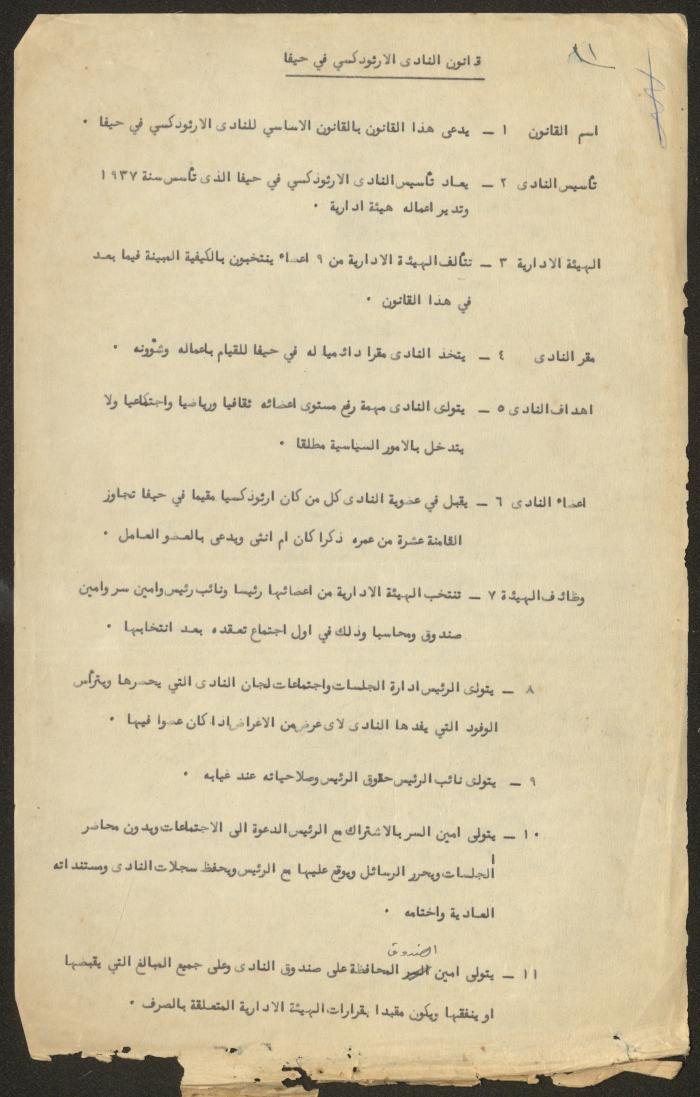 ١١
قانون النادى الارثوذكسي في حيفا
اسم القانون ١ ــ يدعى هذا القانون بالقانون الاساسي للنادى الارثوذكسي في حيفا ٠
تأسيس النادى ٢ ــ يعاد تأسيس النادى الارثوذكسي في حيفا الذى تأسس سنة ١٩٣٧
وتدير اعماله هيئة ادارية ٠
الهيئة الادارية ٣ ــ تتألف الهيئة الادارية من ٩ اعضاء ينتخبون بالكيفية المبينة فيما بعد
في هذا القانون ٠
مقر النادى ٤ ــ يتخذ النادى مقرا دائميا له في حيفا للقيام باعماله وشؤونه ٠
اهداف النادى ٥ ــ يتولى النادى مهمة رفع مستوى اعضائه ثقافيا ورياضيا واجتماعيا ولا
يتدخل بالامور السياسية مطلقا ٠
اعضاء النادى ٦ ــ يقبل في عضوية النادى كل من كان ارثوذكسيا مقيما في حيفا تجاوز
الثامنة عشرة من عمره ذكرا كان ام انثى ويدعى بالعضو العامل ٠
وظائف الهيئة ٧ ــ تنتخب الهيئة الادارية من اعضائها رئيسا ونائب رئيس وامين سر وامين
صندوق ومحاسبا وذلك في اول اجتماع تعقده بعد انتخابها ٠
٨ ــ يتولى الرئيس ادارة الجلسات واجتماعات لجان النادى التي يحضرها ويترأس
الوفود التي يفدها النادى لاى غرض من الاغراض اذا كان عضوا فيها ٠
٩ ــ يتولى نائب الرئيس حقوق الرئيس وصلاحياته عند غيابه ٠
١٠ ــ يتولى امين السر بالاشتراك مع الرئيس الدعوة الى الاجتماعات ويدون محاضر
الجلسات ويحرر الرسائل ويوقع عليها مع الرئيس ويحفظ سجلات النادى ومستنداته
العادية واختامه ٠
الصندوق
١١ ــ يتولى امين السر المحافظة على صندوق النادى وعلى جميع المبالغ التي يقبضها
او ينفقها ويكون مقيدا بقرارات الهيئة الادارية المتعلقة بالصرف ٠